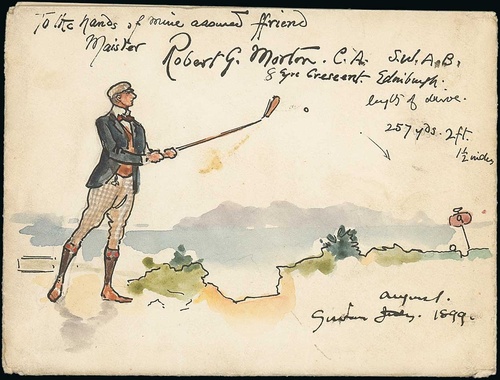 To the hands of mine assured ffriend
Maister Robert G. Morton. C.A. S.W.A.B.
8 Eyre Crescent Edinburgh.
length of drive.
257 yds. 2ft.
1½ inches
August.
1899.